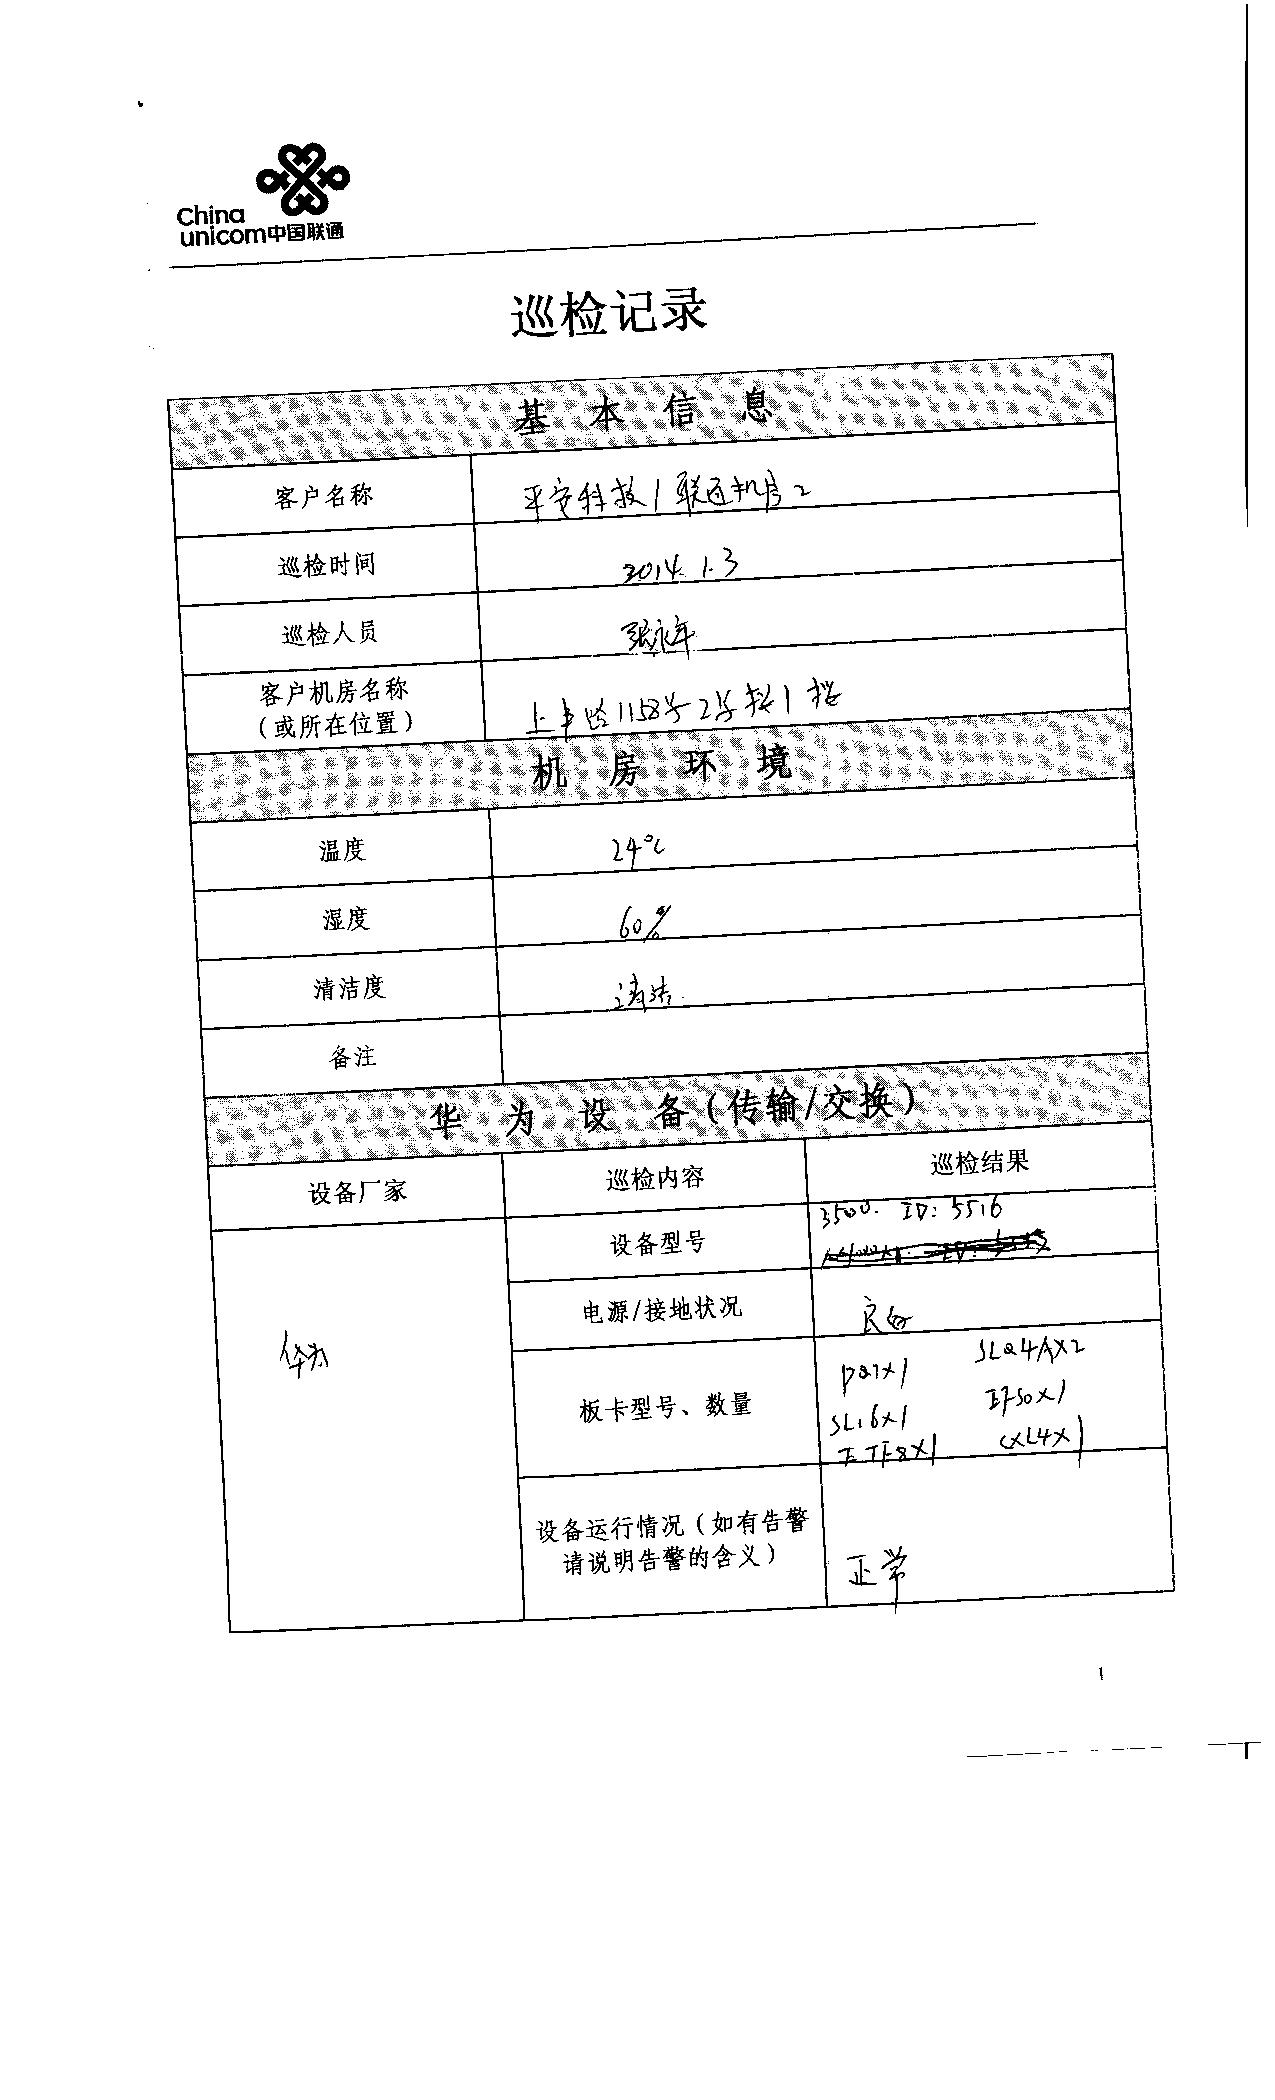 China
unicom中国联通
巡检记录
基本信息
客户名称 平安科技/联通机房2
巡检时间 2014.1.3
巡检人员 张永年
客户机房名称
（或所在位置） 上丰路1158号2号楼1楼
机房环境
温度 24℃
湿度 60%
清洁度 清洁.
备注
华为设备(传输/交换)
设备厂家 巡检内容 巡检结果
华为
设备型号 3500. ID: 5516
电源/接地状况 良好
板卡型号、数量
PQ1×1 SLQ4A×2
SL16×1 EFS0×1
ETF8×1 CXL4×1
设备运行情况（如有告警
请说明告警的含义） 正常
1